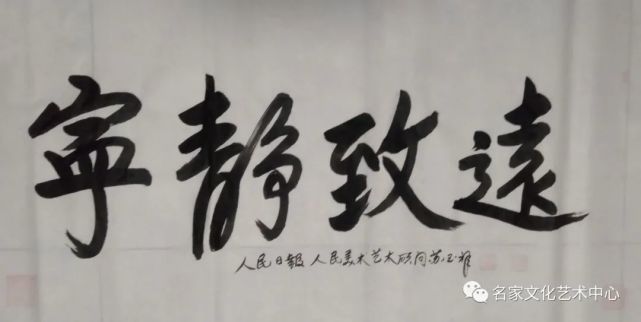 寧靜致遠
人民日報人民美术艺术顾问苏玉
名家文化艺术中心